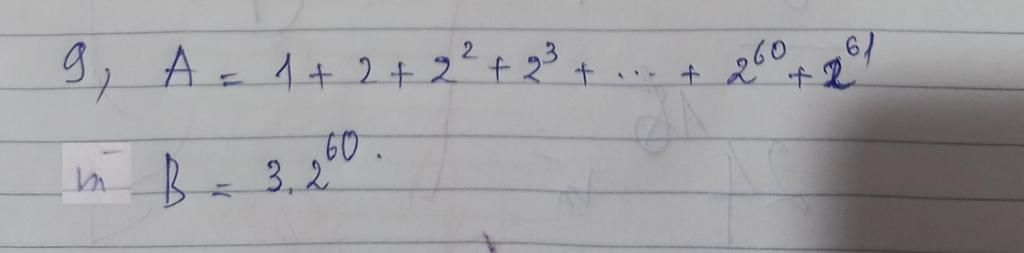 9, A = 1 + 2 + 2² + 2³ + ... + 2⁶⁰ + 2⁶¹
B = 3.2⁶⁰.